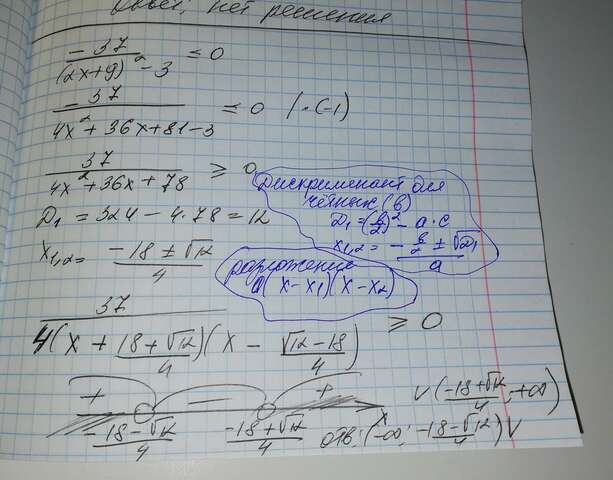 Ответ: нет решения
-37/((2x+9)²-3) ≤ 0
-37/(4x²+36x+81-3) ≤ 0 | ·(-1)
37/(4x²+36x+78) ≥ 0
D₁ = 324 - 4·78 = 12
x₁,₂ = (-18 ± √12)/4
Дискриминант для
чётных (в)
D₁ = (в/2)² - a·c
x₁,₂ = (-в/2 ± √D₁)/a
разложение
a(x-x₁)(x-x₂)
37/(4(x + (18+√12)/4)(x - (√12-18)/4)) ≥ 0
+ - +
x
(-18-√12)/4 (-18+√12)/4
отв: (-∞; (-18-√12)/4) ∨
∨ ((-18+√12)/4; +∞)